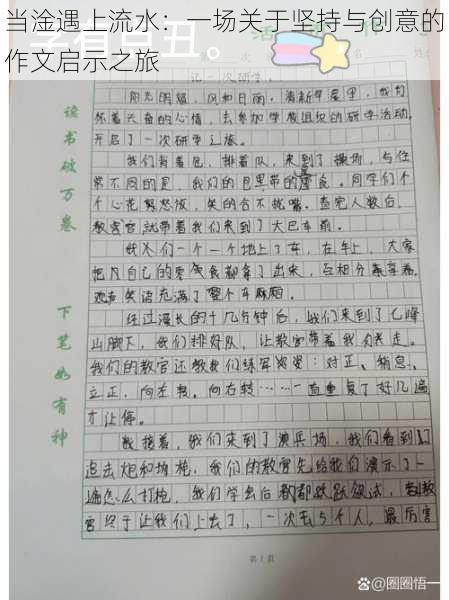 当淦遇上流水：一场关于坚持与创意的
作文启示之旅
读书破万卷
下笔如有神
记一次研学。
阳光明媚，风和日丽，清新学屋里，我们
怀着兴奋的心情，去参加学校组织的研学活动，
开启了一次研学之旅。
我们背着包，排着队，来到了操场，与往
常不同的是，我们的包里带的是零食。同学们个
个心花怒放，笑的合不拢嘴。查完人数后，
教官就带着我们来到了大巴车前。
我们一个一个地上了车，在车上，大家
把自己的零食都拿了出来，互相分享着，
欢声笑语充满了整个车厢。
经过漫长的十几分钟后，我们来到了七峰
山脚下，我们排好队，让教官带着我们走。
我们的教官还教我们练军姿：对正、稍息、
立正，向左转、向右转……一直重复了好几遍
才让停。
接着，我们来到了演兵场，我们看到了
迫击炮和场枪，我们的教官先给我们演示了一
遍怎么打枪，我们学会后都跃跃欲试，教
官终于让我们上去了，一次去5个人，最厉害
第1页
@圈圈悟一